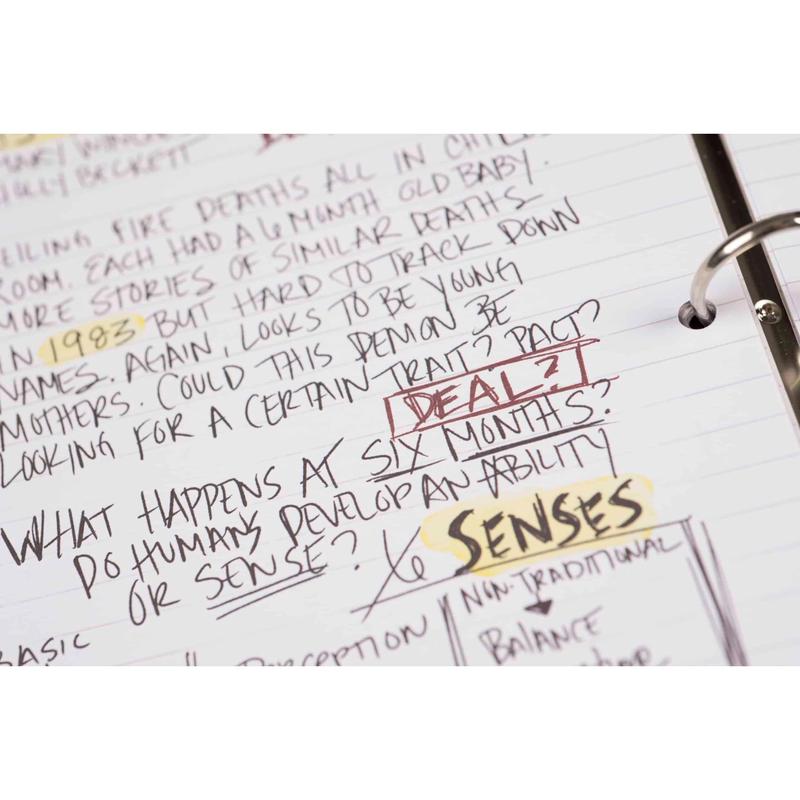 BECKETT
EILING FIRE DEATHS ALL IN
ROOM. EACH HAD A 6 MONTH OLD BABY.
MORE STORIES OF SIMILAR DEATHS
IN 1983 BUT HARD TO TRACK DOWN
NAMES. AGAIN, LOOKS TO BE YOUNG
MOTHERS. COULD THIS DEMON BE
LOOKING FOR A CERTAIN TRAIT? PACT?
DEAL?
WHAT HAPPENS AT SIX MONTHS?
DO HUMANS DEVELOP AN ABILITY
OR SENSE?
SENSES
NON-TRADITIONAL
BASIC
PERCEPTION
BALANCE